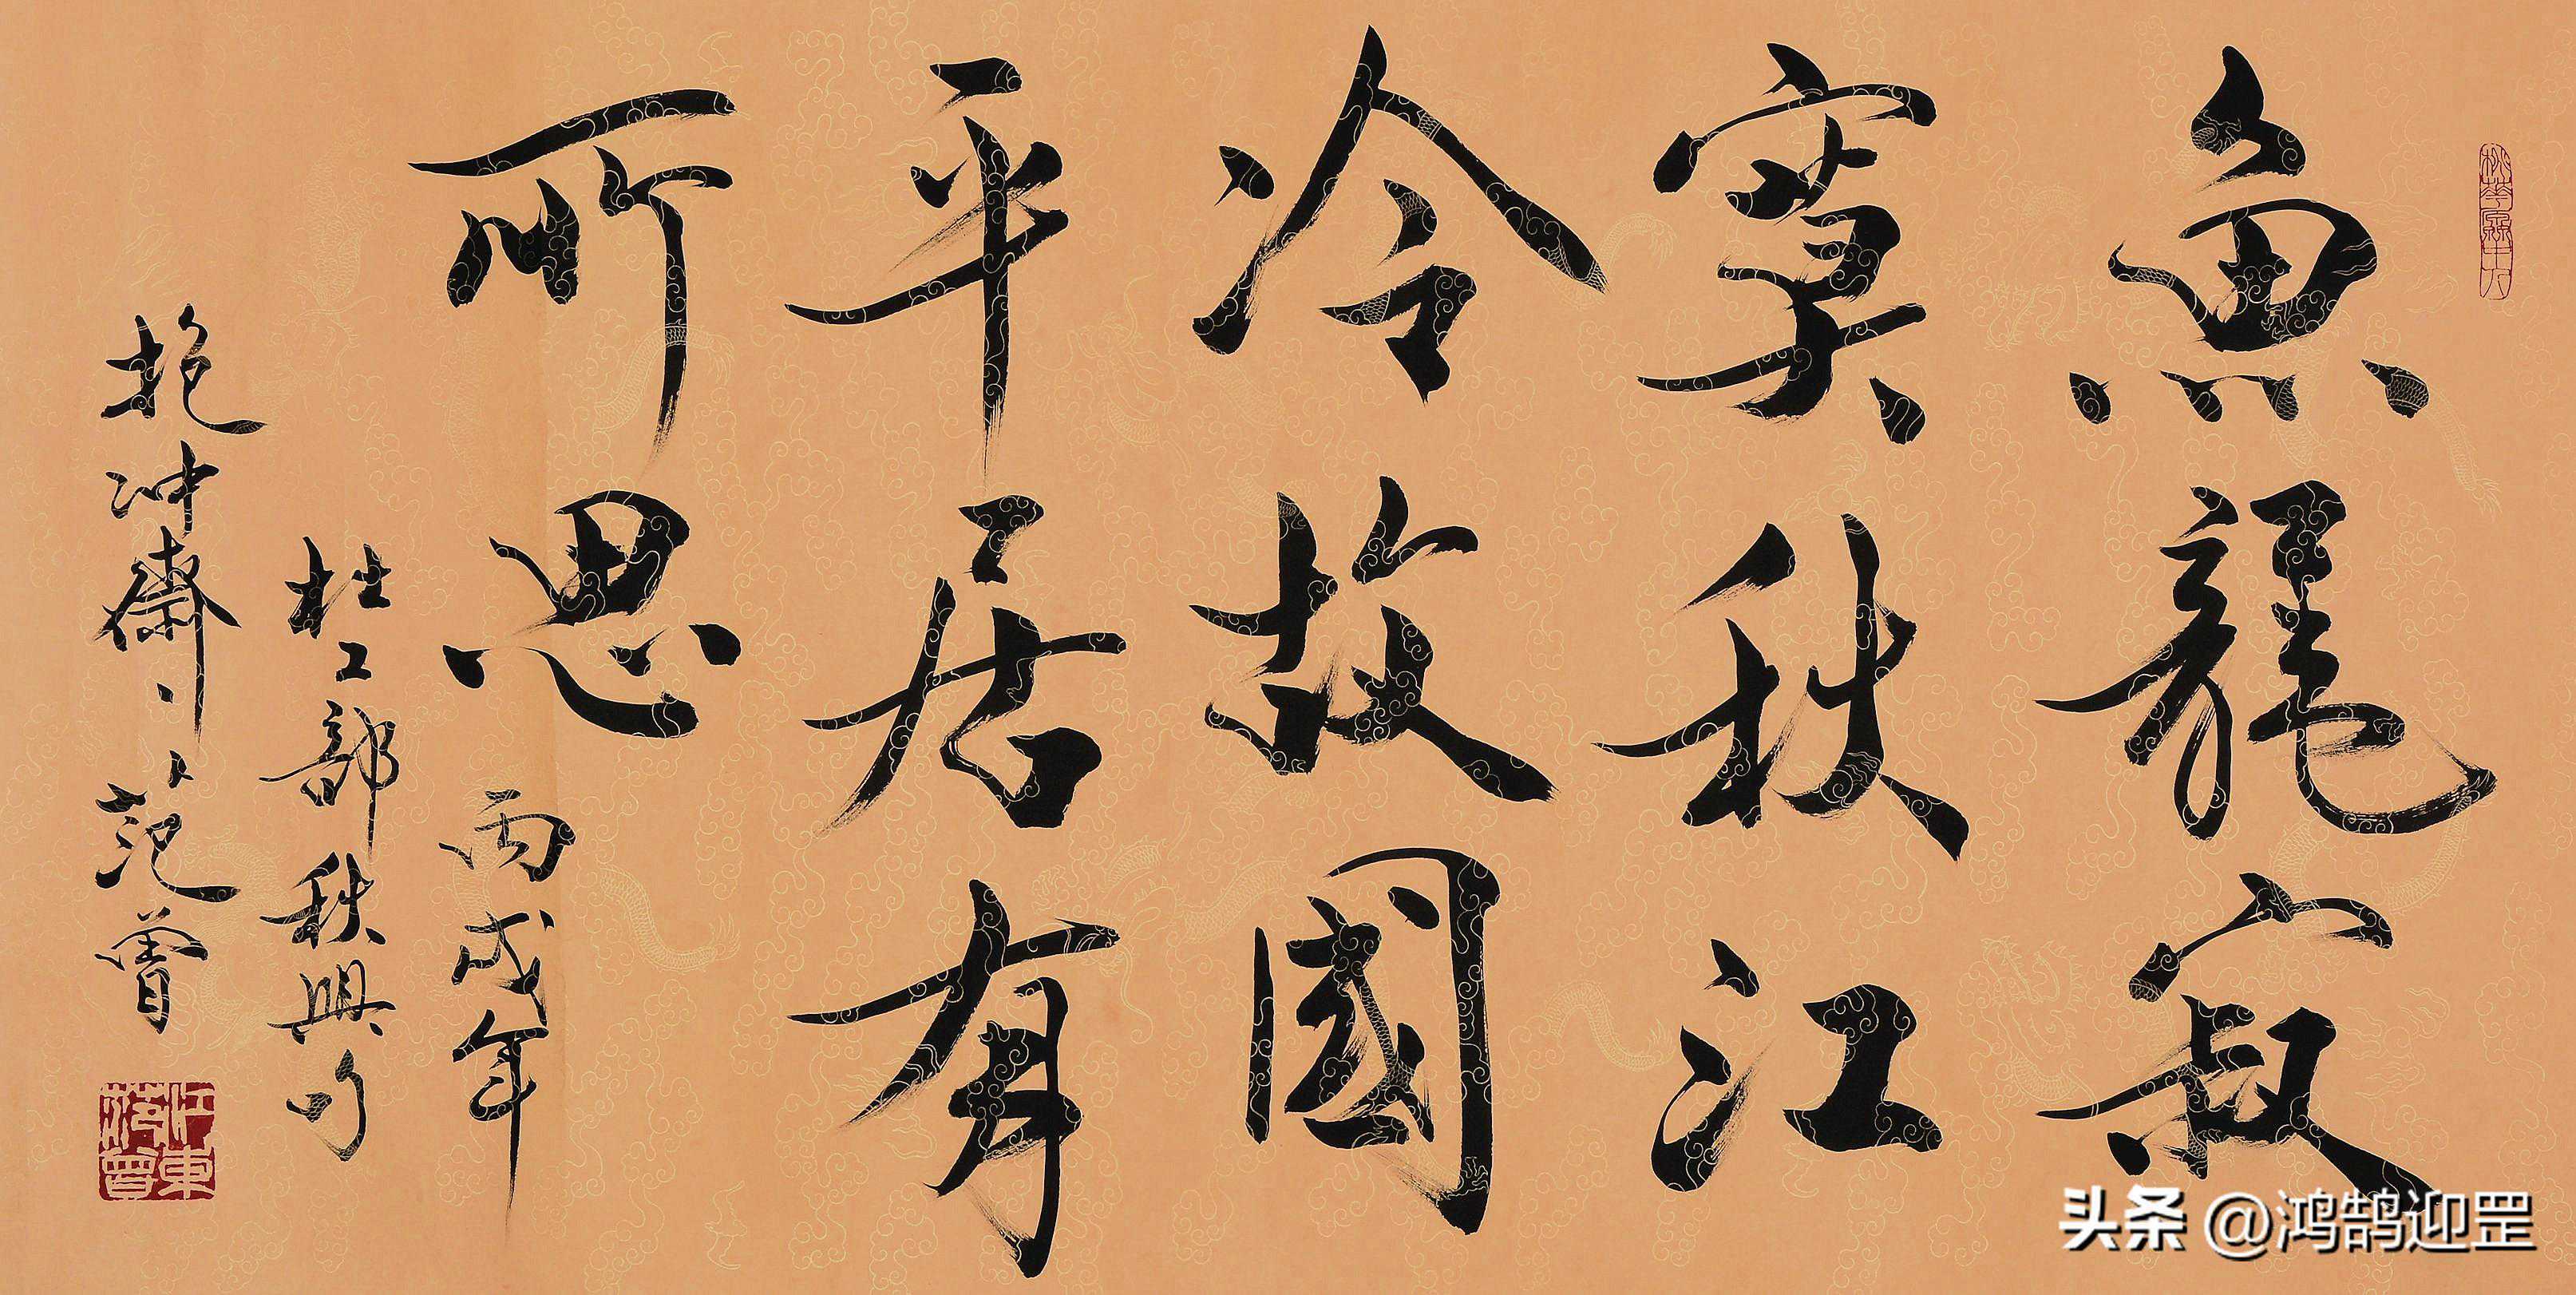 魚龍寂
寞秋江
冷故國
平居有
所思
丙戌年
杜工部秋興句
抱冲齋主人范曾
江東范曾
头条 @鸿鹄迎罡